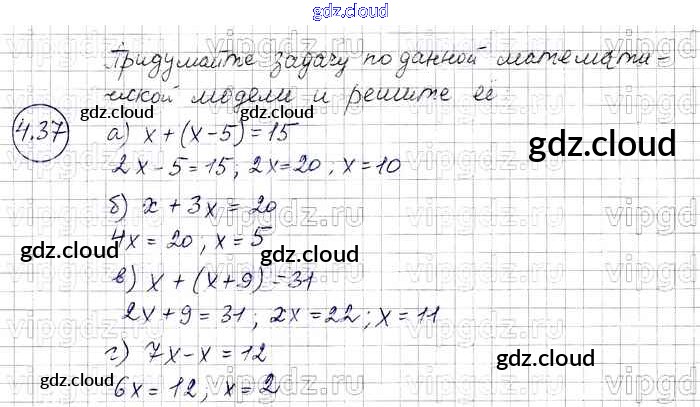 gdz.cloud
Придумайте задачу по данной математи-
ческой модели и решите её
4.37
gdz.cloud
gdz.cloud
а) x + (x - 5) = 15
gdz.cloud
2x - 5 = 15; 2x = 20; x = 10
б) x + 3x = 20
vipgdz.ru
4x = 20; x = 5
gdz.cloud
gdz.cloud
в) x + (x + 9) = 31
2x + 9 = 31; 2x = 22; x = 11
vipgdz.ru
г) 7x - x = 12
gdz.cloud
gdz.cloud
6x = 12, x = 2